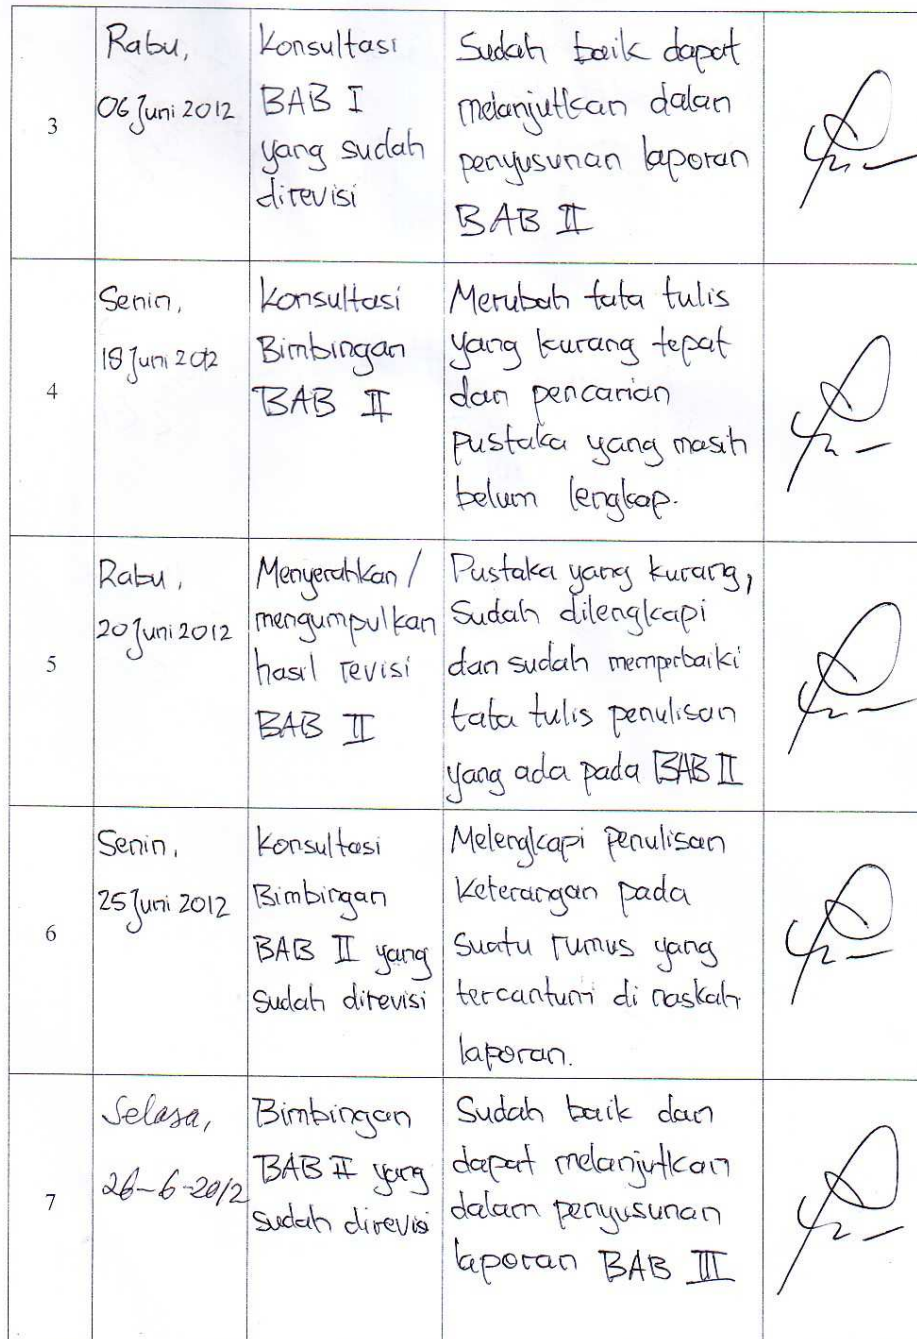 3
Rabu,
06 Juni 2012
Konsultasi
BAB I
yang sudah
direvisi
Sudah baik dapat
melanjutkan dalan
penyusunan laporan
BAB II
4
Senin,
18 Juni 2012
Konsultasi
Bimbingan
BAB II
Merubah tata tulis
yang kurang tepat
dan pencarian
pustaka yang masih
belum lengkap.
5
Rabu,
20 Juni 2012
Menyerahkan /
mengumpulkan
hasil revisi
BAB II
Pustaka yang kurang,
Sudah dilengkapi
dan sudah memperbaiki
tata tulis penulisan
yang ada pada BAB II
6
Senin,
25 Juni 2012
Konsultasi
Bimbingan
BAB II yang
sudah direvisi
Melengkapi penulisan
Keterangan pada
suatu rumus yang
tercantum di naskah
laporan.
7
Selasa,
26-6-2012
Bimbingan
BAB II yang
sudah direvisi
Sudah baik dan
dapat melanjutkan
dalam penyusunan
laporan BAB III